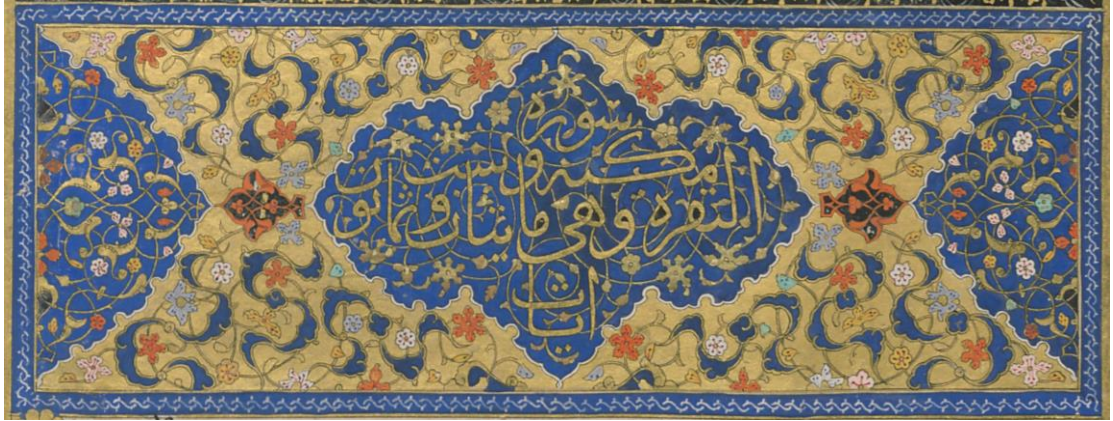 سوره
البقره مكيه وهى مايتان وست وثمانون
ايات